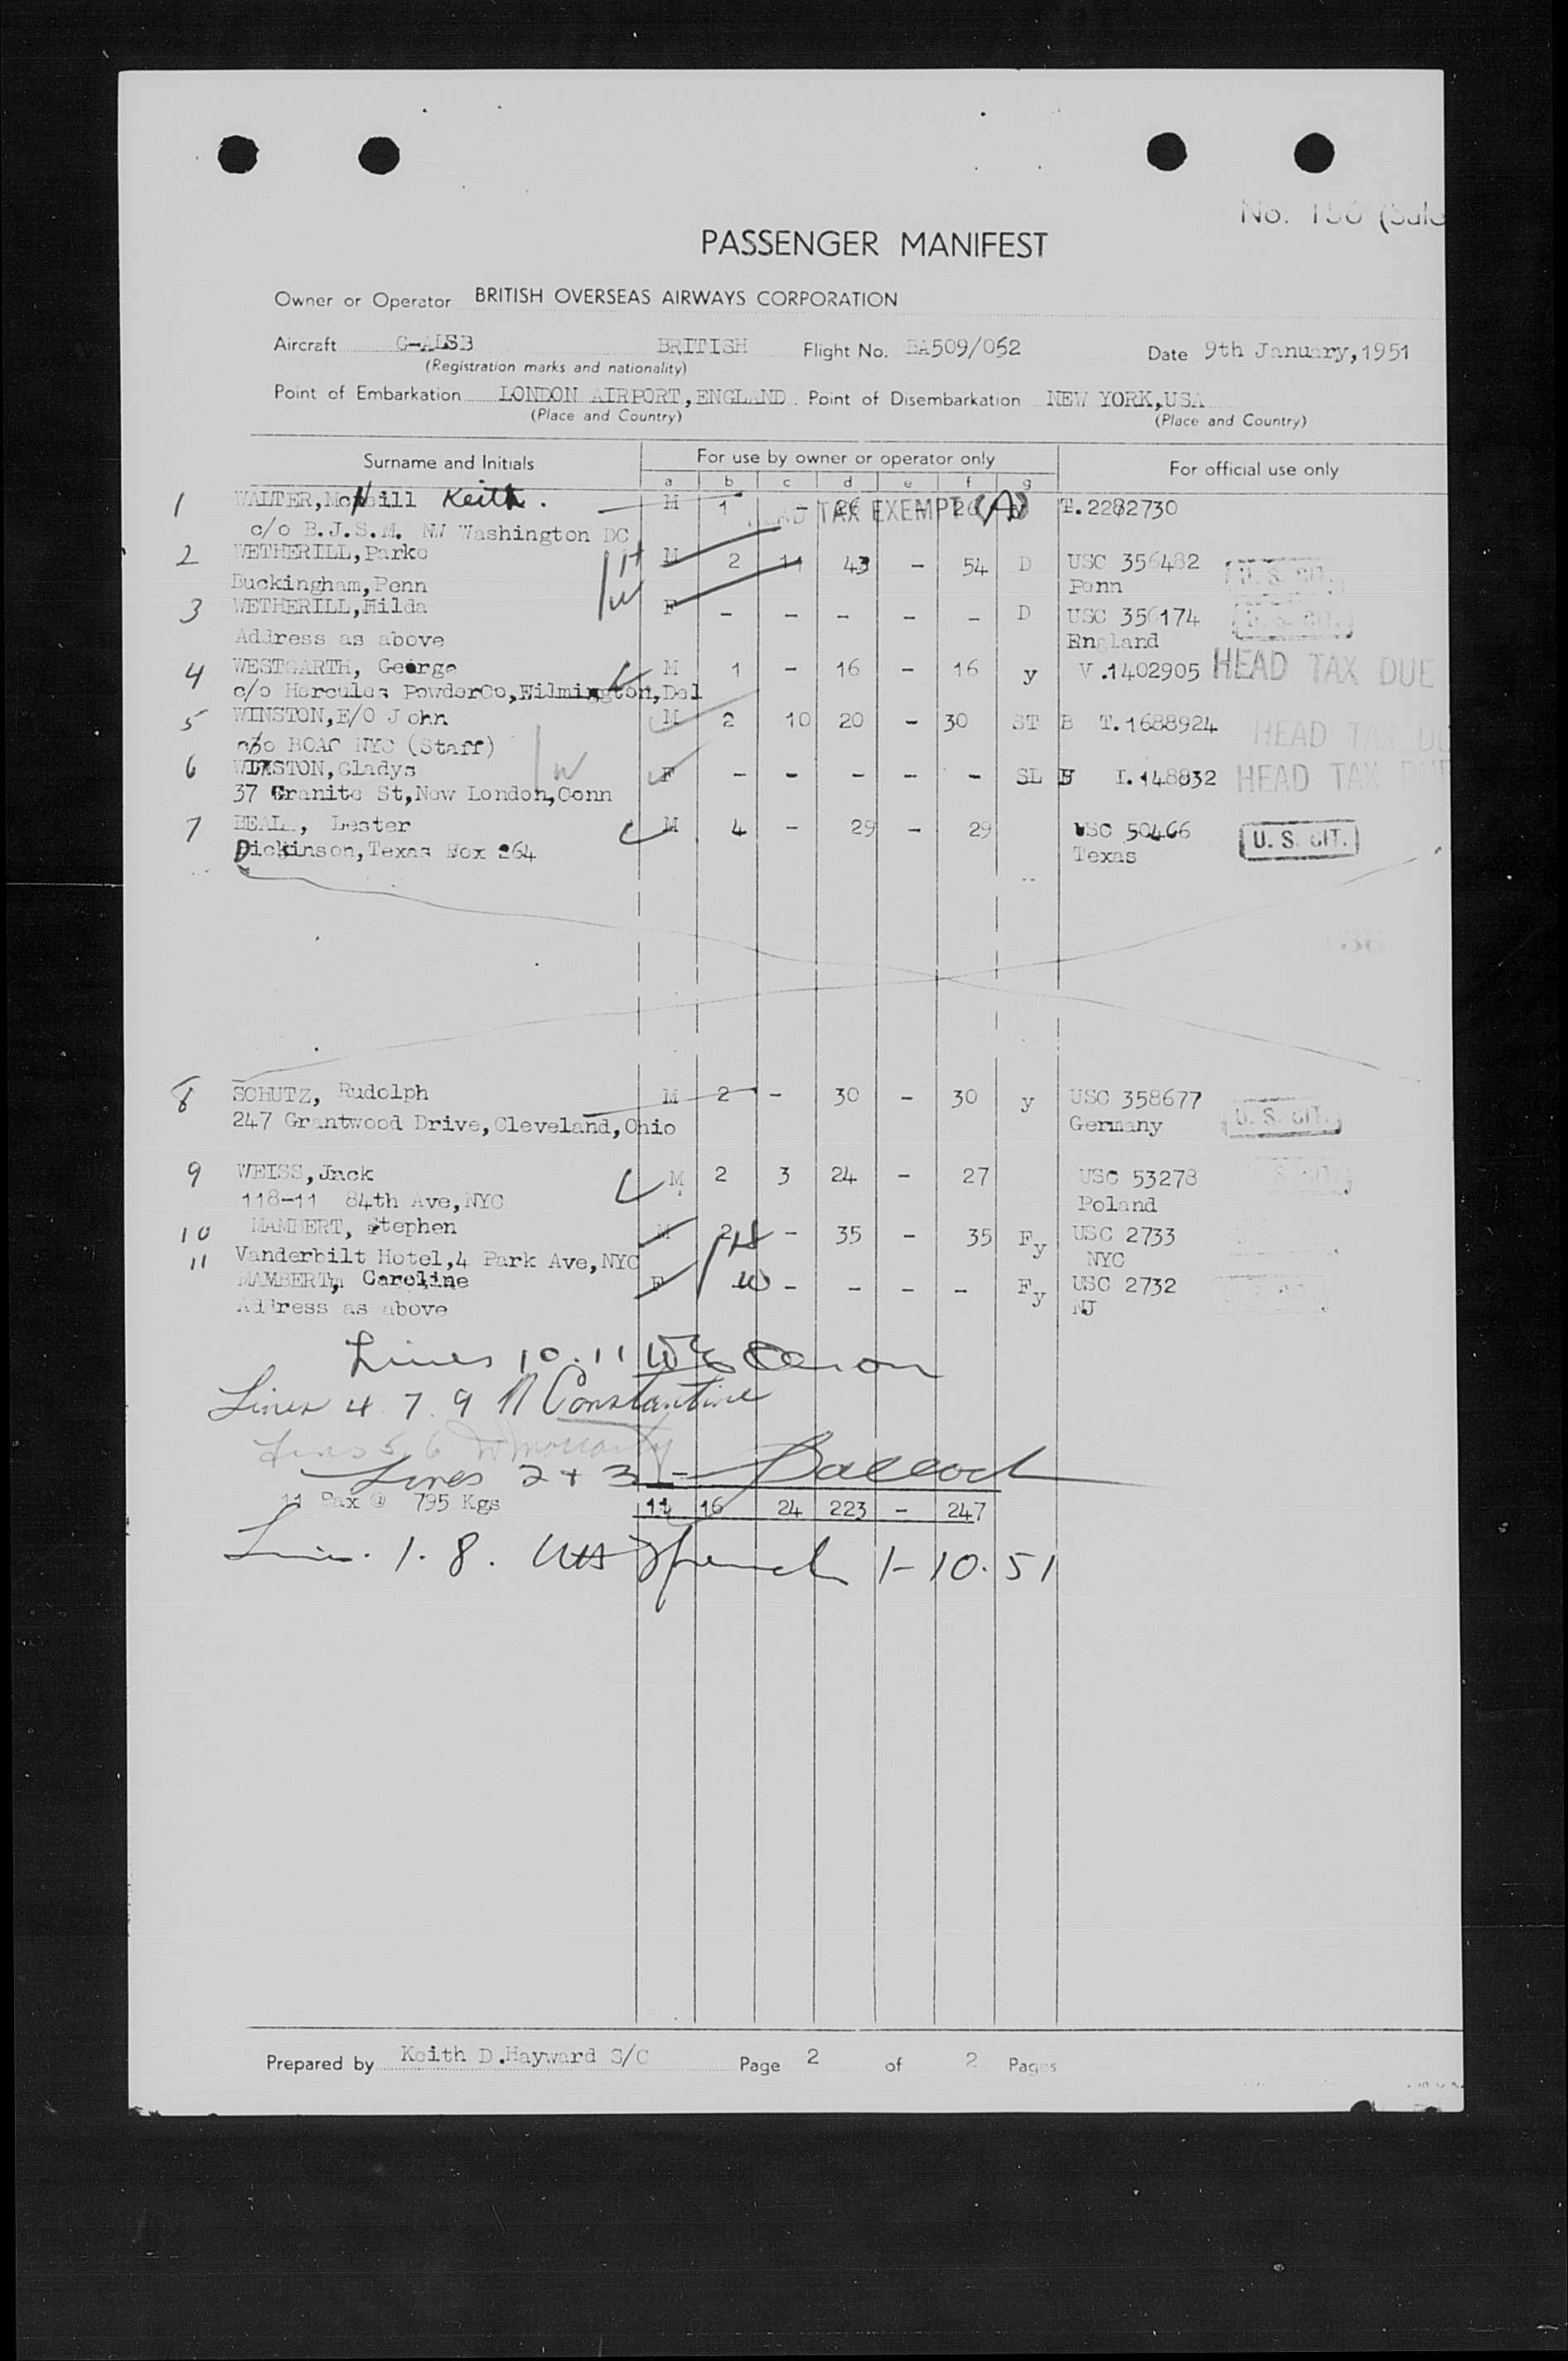 PASSENGER MANIFEST
Owner or Operator BRITISH OVERSEAS AIRWAYS CORPORATION
Aircraft G-ALSB BRITISH Flight No. BA509/052 Date 9th January, 1951
(Registration marks and nationality)
Point of Embarkation LONDON AIRPORT, ENGLAND Point of Disembarkation NEW YORK, USA
(Place and Country) (Place and Country)
Surname and Initials For use by owner or operator only For official use only
a b c d e f g
1 WALTER, McNeill Keith. M 1 - 26 - 26 T.2282730
HEAD TAX EXEMPT
c/o B.J.S.M. NW Washington DC
2 WETHERILL, Parke H M 2 11 43 - 54 D USC 356482 U. S. CIT.
Buckingham, Penn W Penn
3 WETHERILL, Hilda F - - - - - D USC 356174 U. S. CIT.
Address as above England
4 WESTGARTH, George M 1 - 16 - 16 y V.1402905 HEAD TAX DUE
c/o Hercules PowderCo, Wilmington, Del
5 WINSTON, E/O John M 2 10 20 - 30 ST B T.1688924 HEAD TAX DUE
c/o BOAC NYC (Staff)
6 WINSTON, Gladys W F - - - - - SL I.148832 HEAD TAX DUE
37 Granite St, New London, Conn
7 BEALL, Lester M 4 - 29 - 29 USC 50466 U. S. CIT.
Dickinson, Texas Box 264 Texas
8 SCHUTZ, Rudolph M 2 - 30 - 30 y USC 358677 U. S. CIT.
247 Grantwood Drive, Cleveland, Ohio Germany
9 WEISS, Jack M 2 3 24 - 27 USC 53278
118-11 84th Ave, NYC Poland
10 MAMBERT, Stephen M 2 H - 35 - 35 Fy USC 2733
11 Vanderbilt Hotel, 4 Park Ave, NYC NYC
MAMBERT, Caroline F W - - - - Fy USC 2732
Address as above NJ
Lines 10.11
Lines 4 7. 9 N Constantine
Lines 5, 6 Moriarty
Lines 2 + 3 -
11 Pax @ 795 Kgs 11 16 24 223 - 247
Lines. 1. 8. 1-10.51
Prepared by Keith D. Hayward S/C Page 2 of 2 Pages